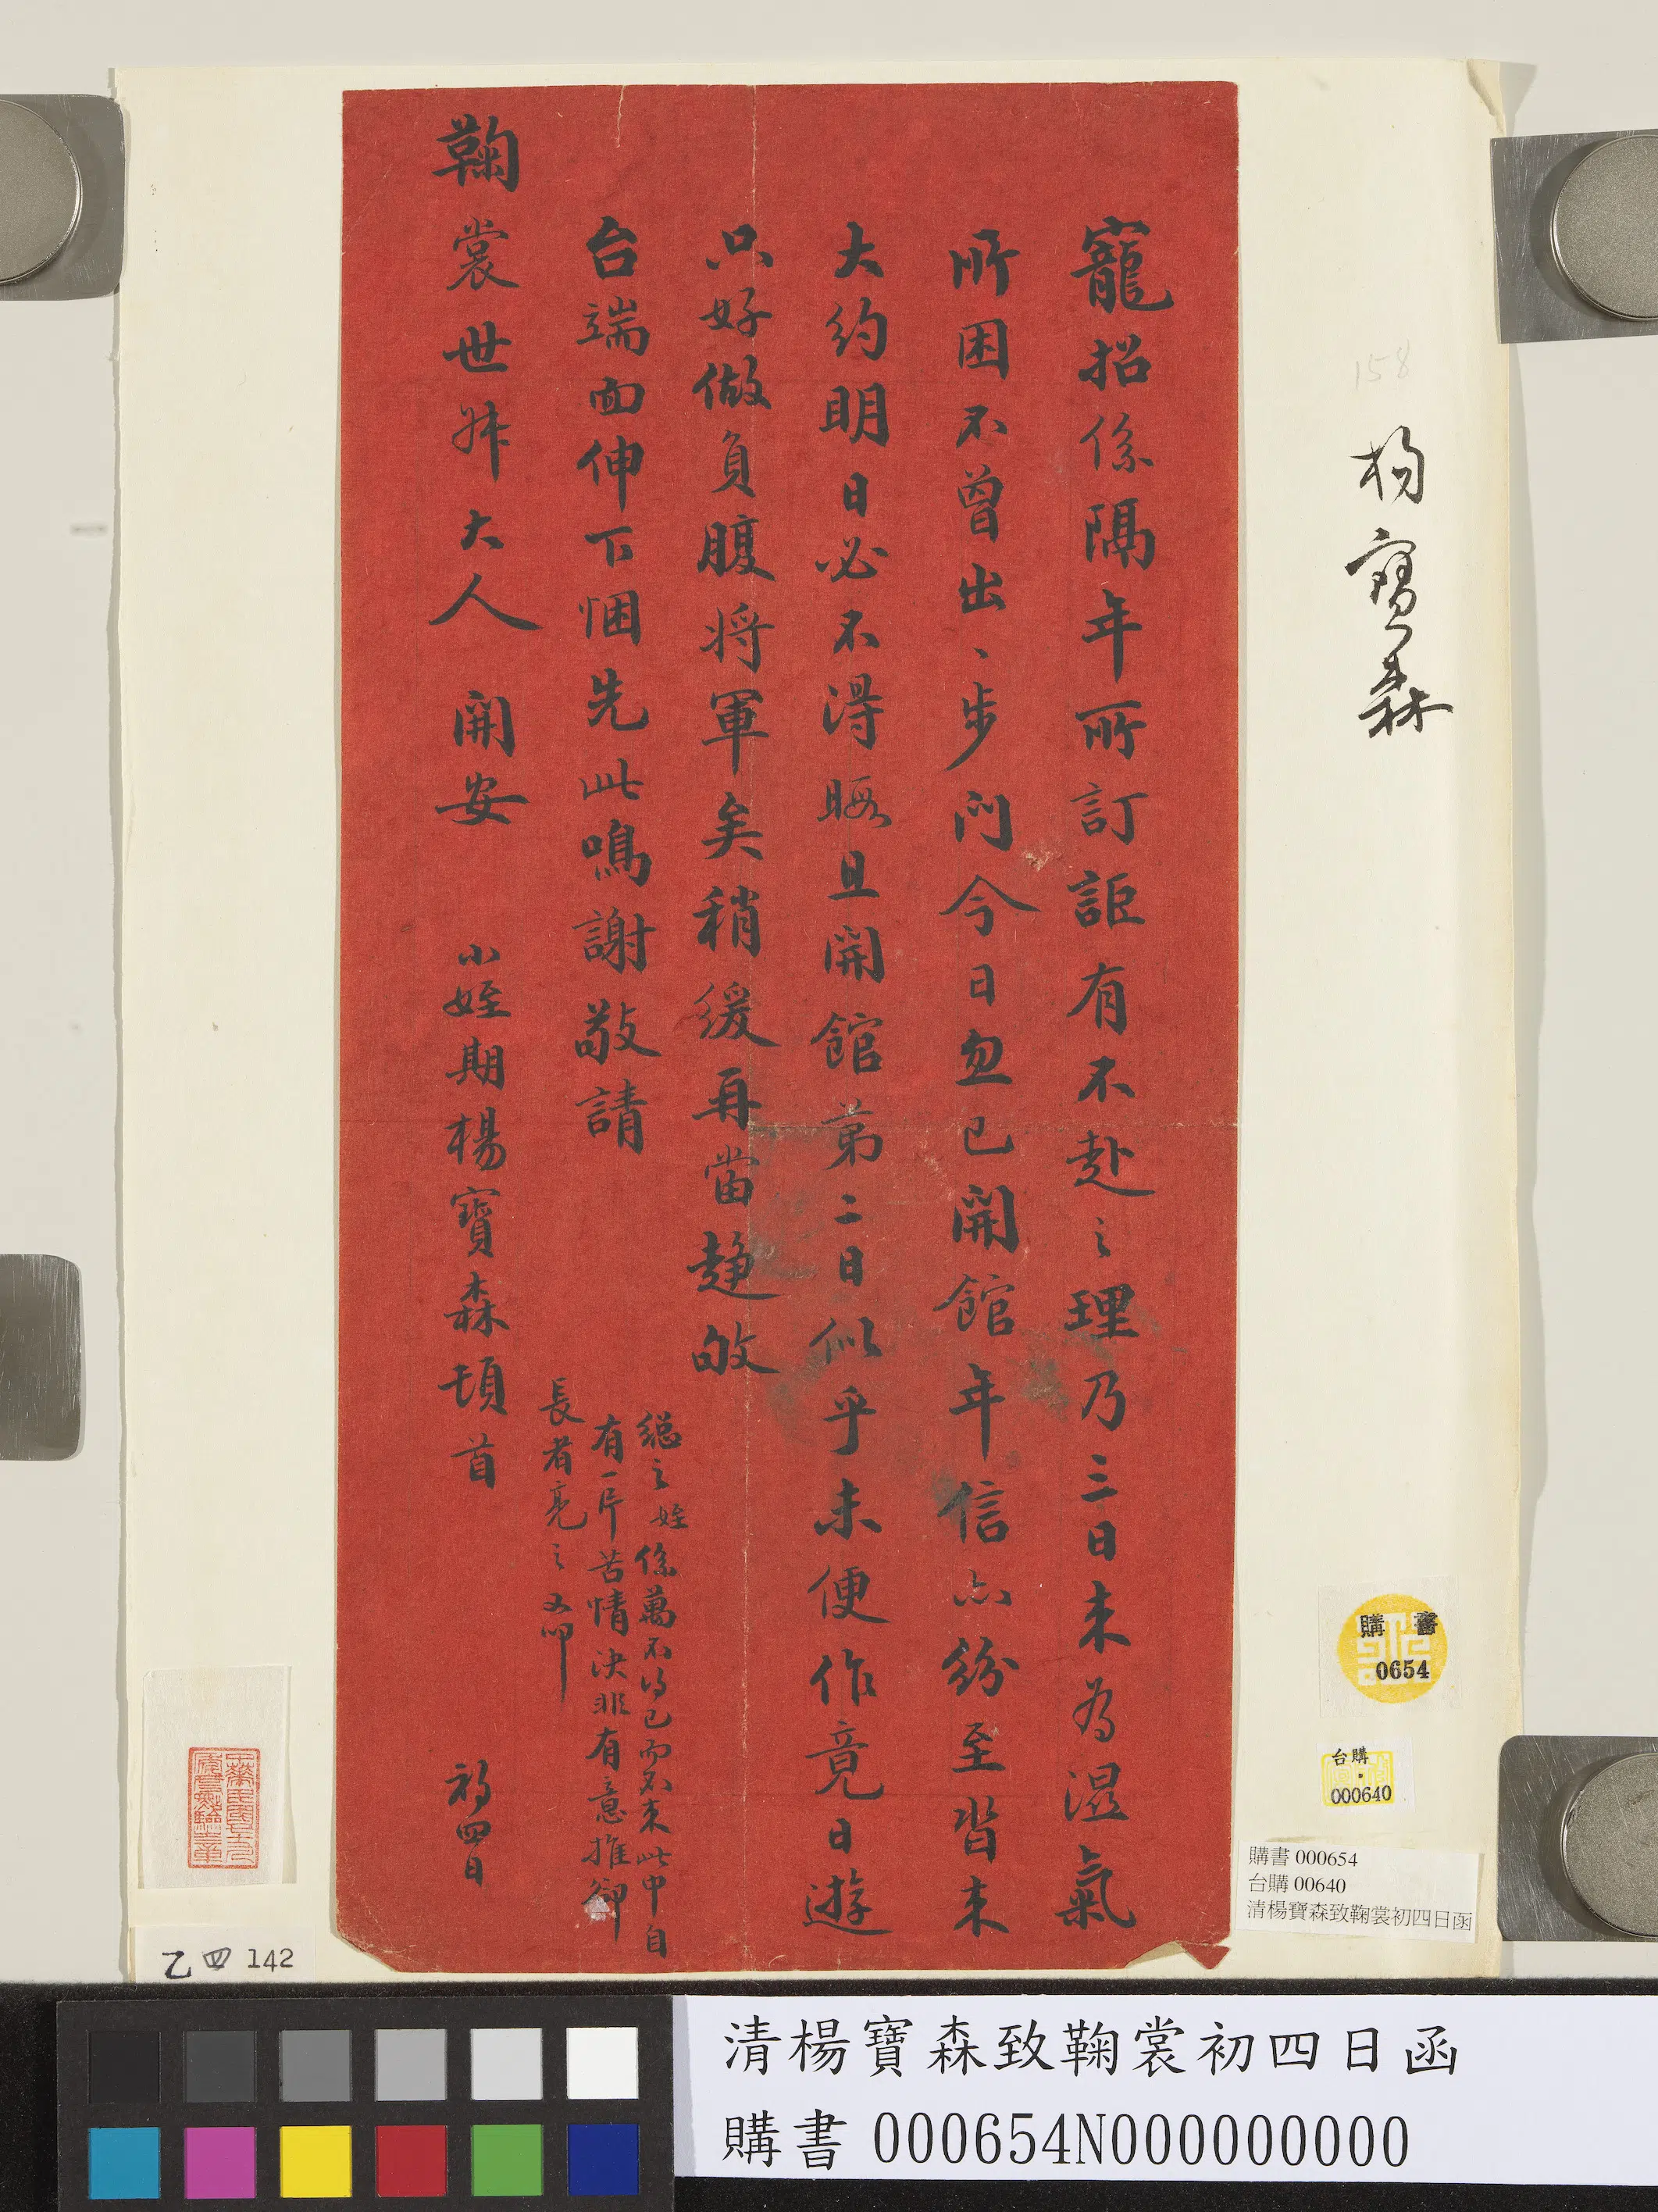 寵招係隔年所訂詎有不赴之理乃三日来為濕氣
所困不曾出〻步門今日忽已開館年信亦紛至沓来
大約明日必不得暇且開館第二日似乎未便作竟日遊
只好做負腹將軍矣稍緩再當趋敂
台端面伸下悃先此鳴謝敬請
鞠裳世丼大人 開安 小姪期楊寶森頓首 初四日
總之姪係萬不得已而不来此中自
有一片苦情決非有意推卻
長者亮之又叩
158
楊寶森
購書
0654
台購
000640
購書 000654
台購 00640
清楊寶森致鞠裳初四日函
乙四 142
清楊寶森致鞠裳初四日函
購書 000654N000000000